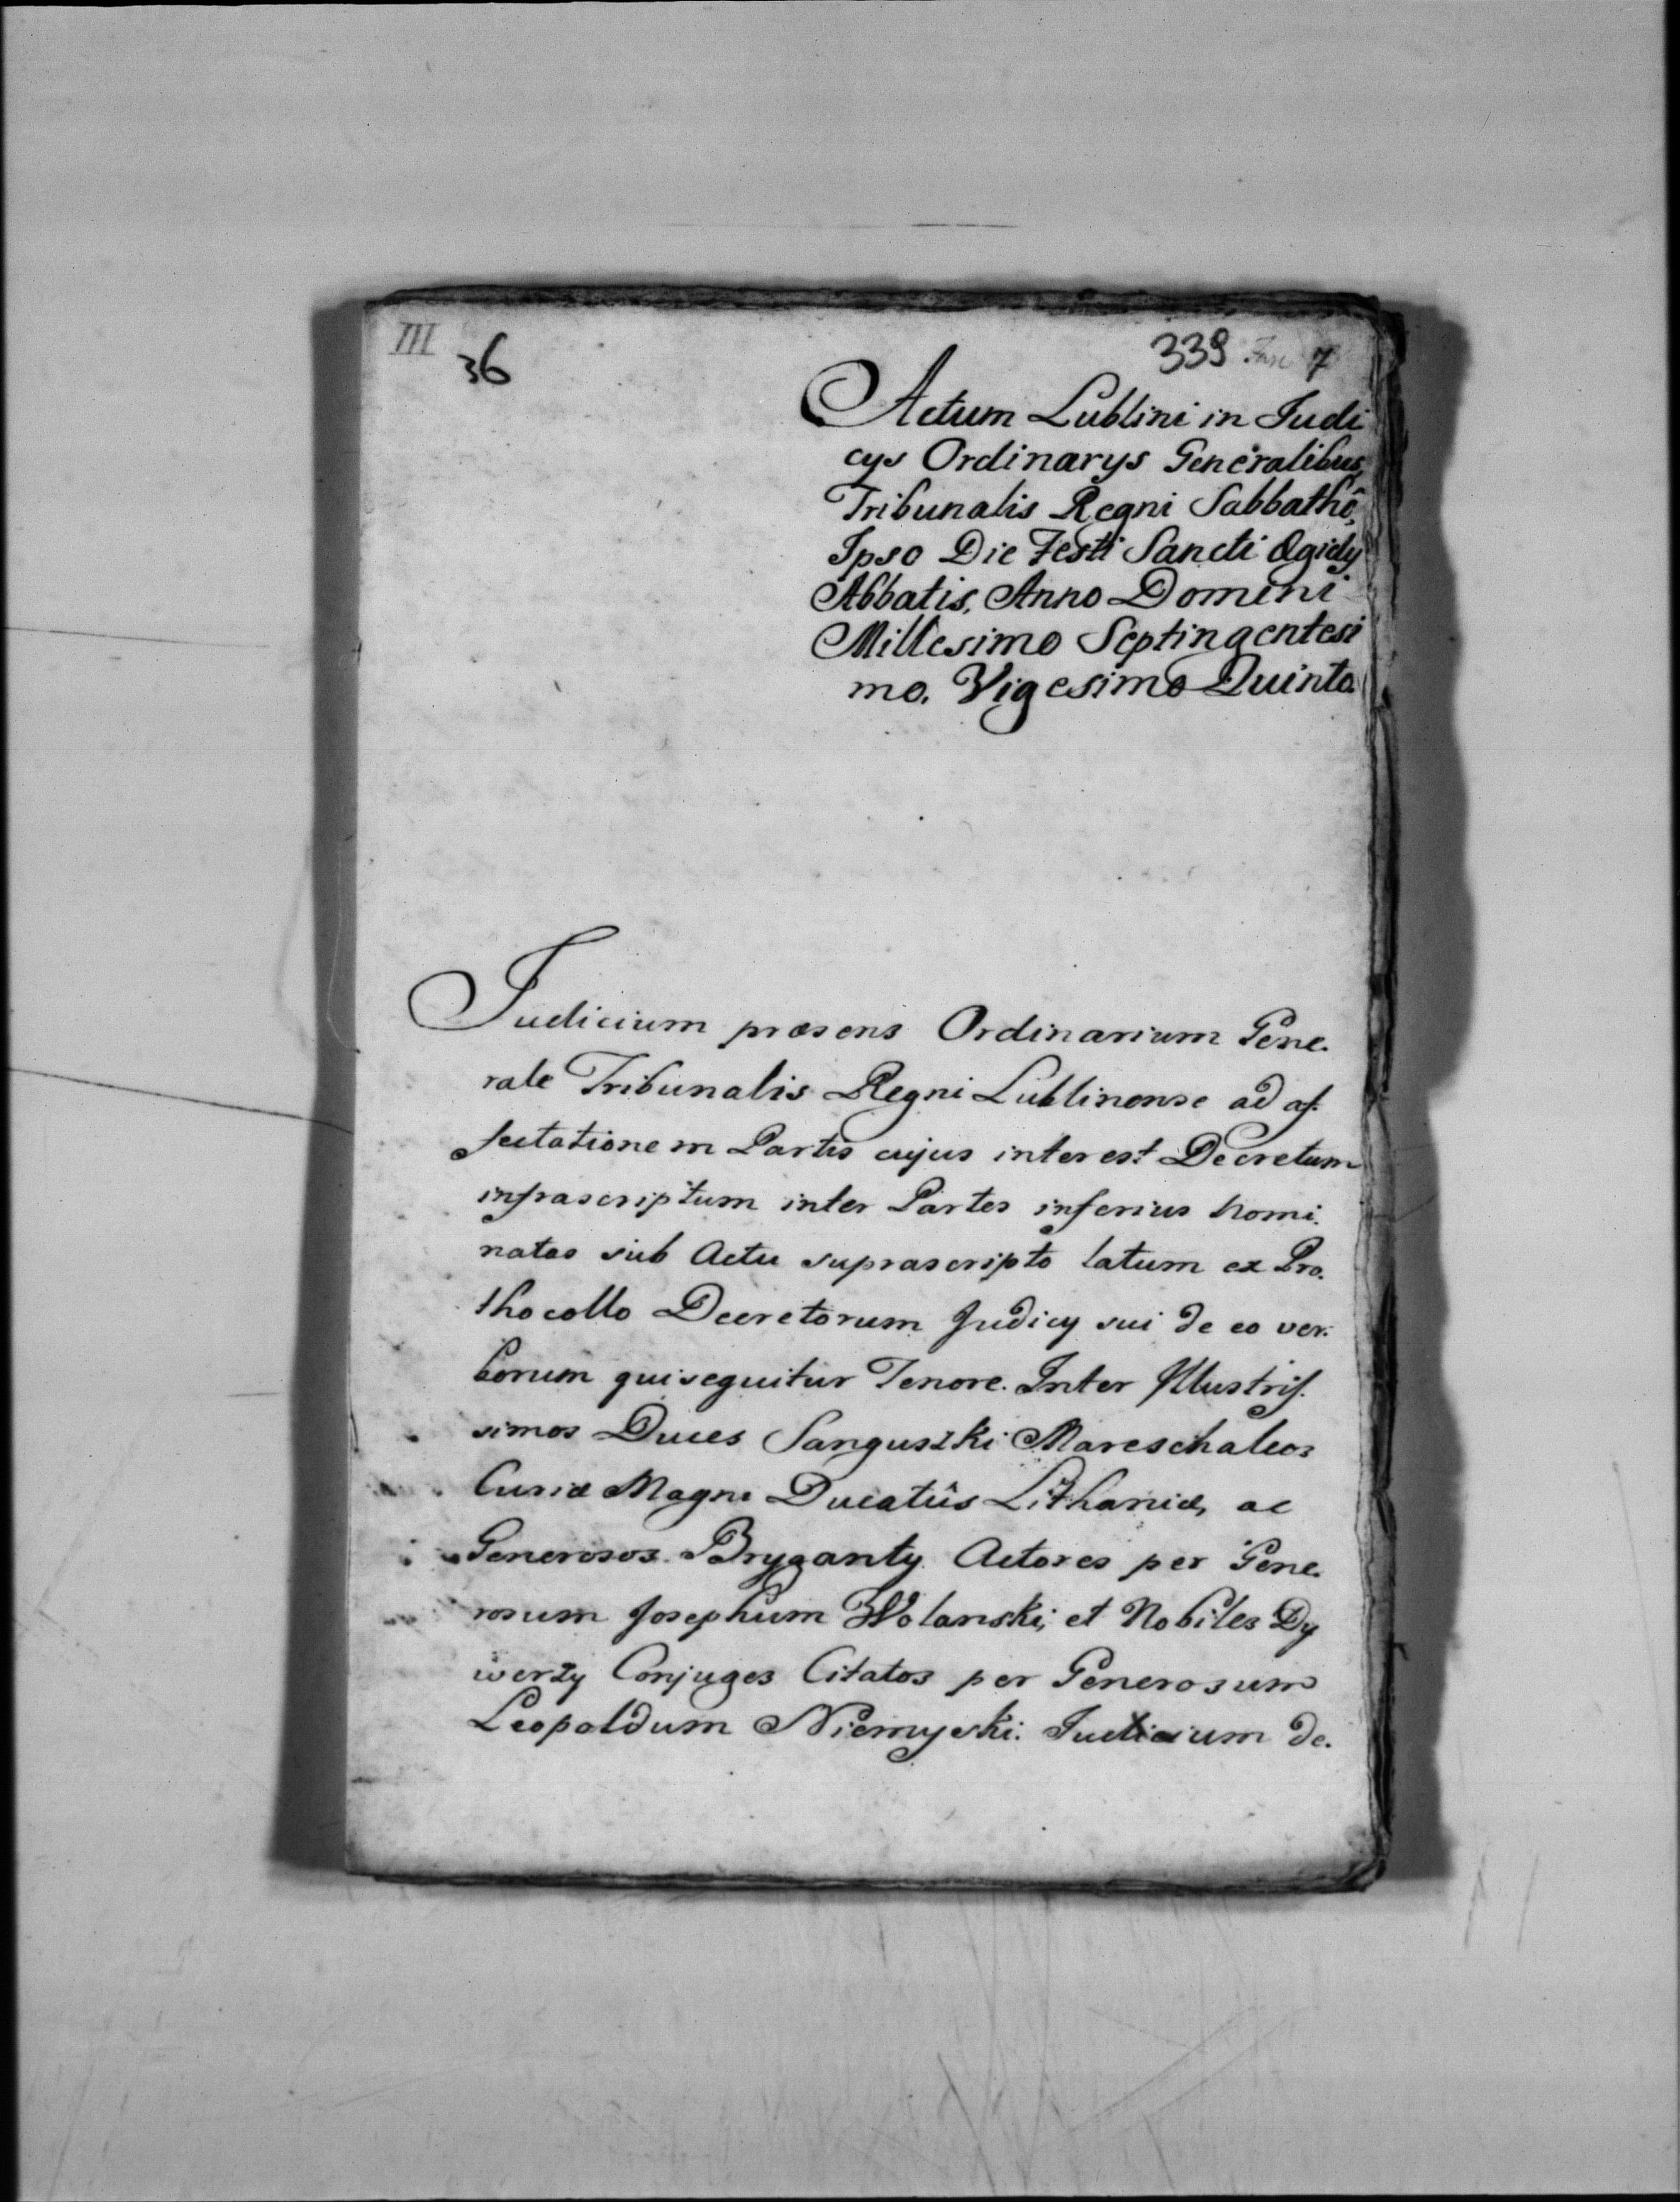 III
36
339 Fasc 7
Actum Lublini in Judi
cys Ordinarys Generalibus,
Tribunalis Regni Sabbathô,
Ipso Die Festi Sancti Ægidy
Abbatis, Anno Domini
Millesimo Septingentesi
mo. Vigesimo Quinto
Judicium præsens Ordinarium Gene.
rale Tribunalis Regni Lublinense ad af.
fectationem Partis cujus interest Decretum
infrascriptum inter Partes inferius Nomi.
natas sub Actu suprascripto latum ex Pro.
thocollo Decretorum Judicy sui de eo ver.
borum qui sequitur Tenore. Inter Illustris.
simos Duces Sanguszki Mareschalcos
Curiæ Magni Ducatûs Lithaniæ, ac
Generosos Bryganty Actores per Gene.
rosum Josephum Wolanski, et Nobiles Dy
werzy Conjuges Citatos per Generosum
Leopoldum Niemyski. Judicium de.